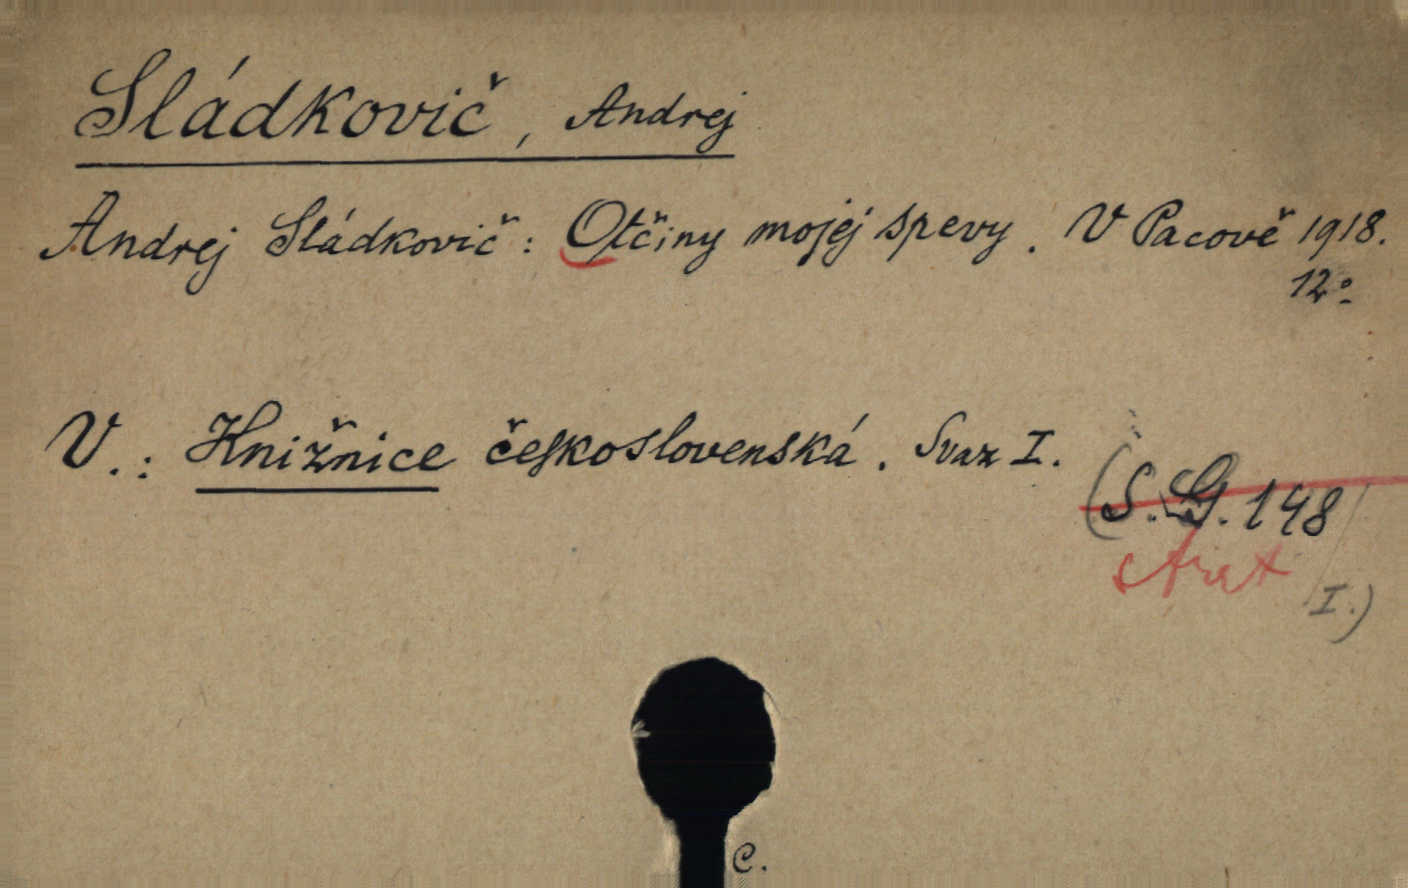 Sládkovič, Andrej
Andrej Sládkovič: Otčiny mojej spevy. V Pacově 1918.
12°
V.: Knižnice československá. Svaz I.
(S. G. 148
I.)
C.